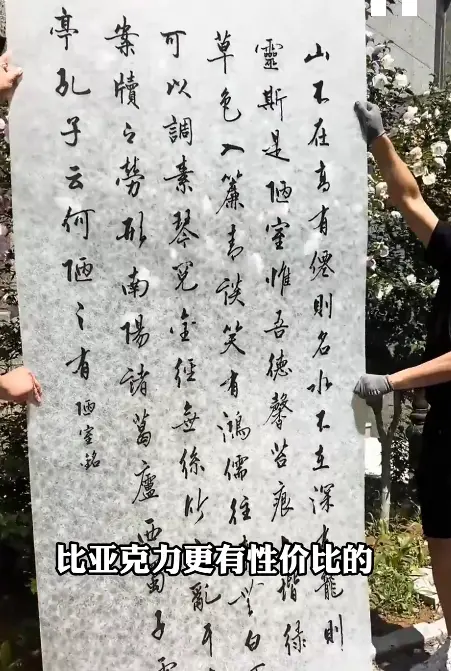 山不在高有僊則名水不在深有龍則
靈斯是陋室惟吾德馨苔痕階緑
草色入簾青談笑有鴻儒往無白
可以調素琴閱金經無絲竹亂耳
案牘之勞形南陽諸葛廬西蜀子雲
亭孔子云何陋之有
陋室銘
比亚克力更有性价比的